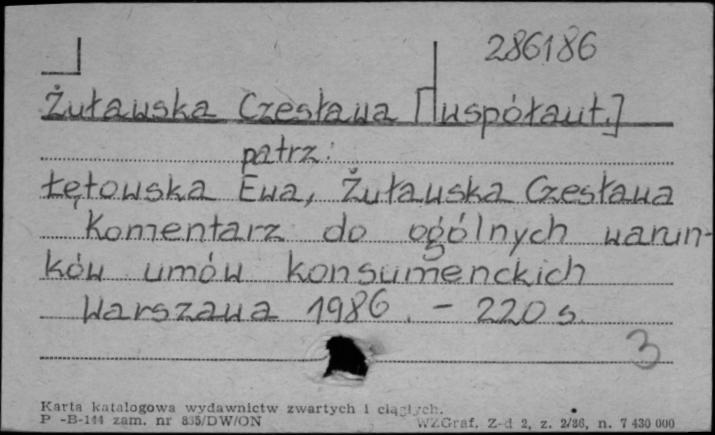 286186
Żuławska Czesława [współaut.]
patrz:
Łętowska Ewa, Żuławska Czesława
Komentarz do ogólnych warun-
ków umów konsumenckich
Warszawa 1986. - 220 s.
3
Karta katalogowa wydawnictw zwartych i ciągłych.
P -B-144 zam. nr 835/DW/ON
WZGraf. Z-d 2, z. 2/86, n. 7 430 000